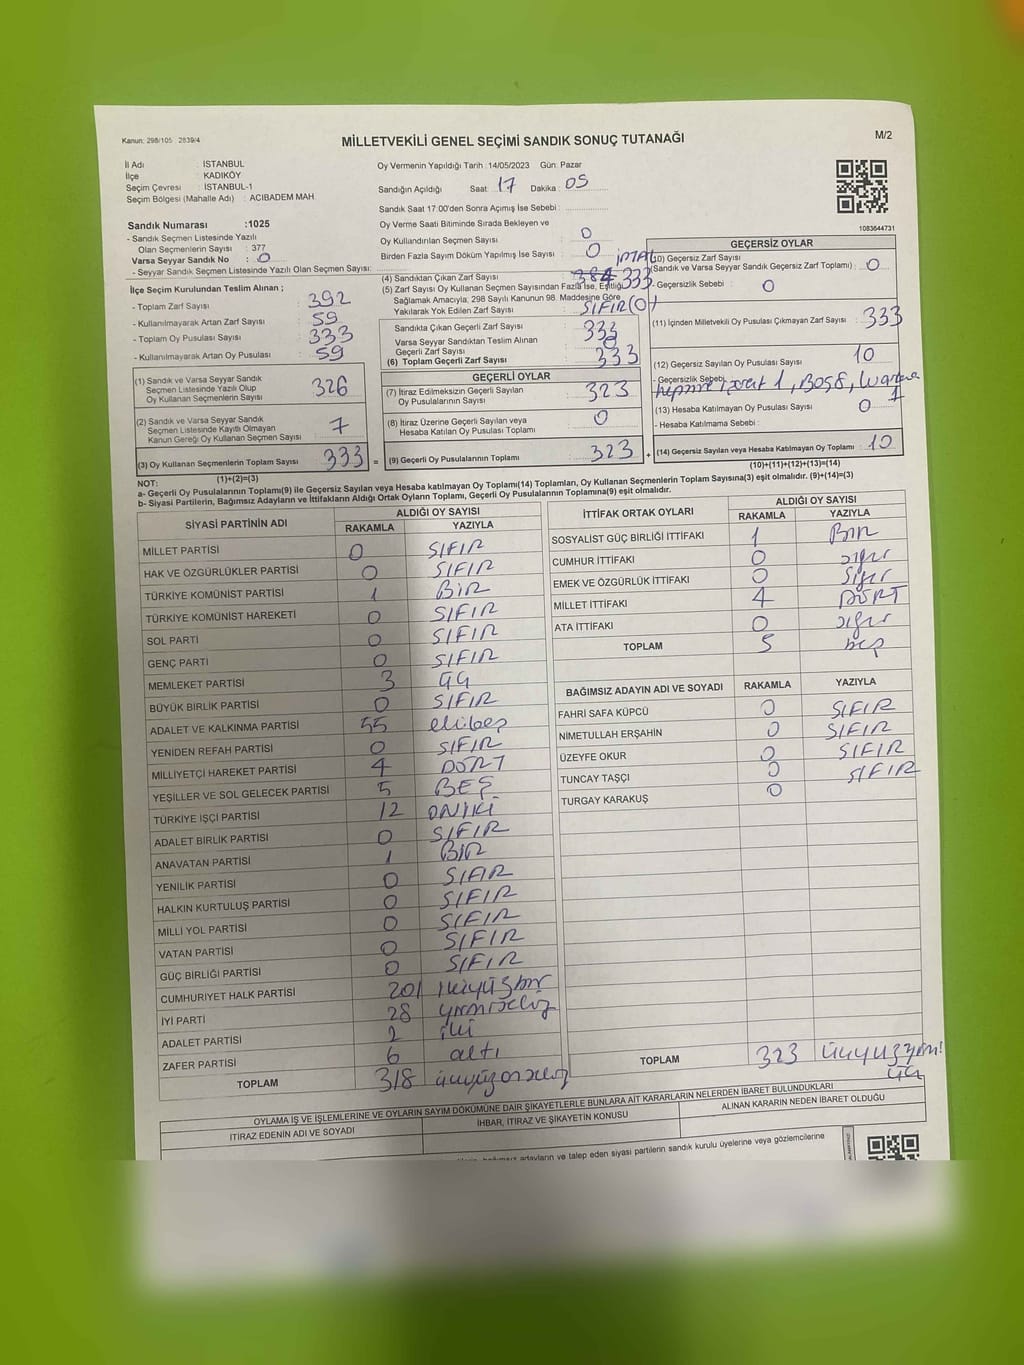 Kanun: 298/105 2839/4
MİLLETVEKİLİ GENEL SEÇİMİ SANDIK SONUÇ TUTANAĞI
M/2
İl Adı : İSTANBUL
İlçe : KADIKÖY
Seçim Çevresi : İSTANBUL-1
Seçim Bölgesi (Mahalle Adı) : ACIBADEM MAH
Oy Vermenin Yapıldığı Tarih :14/05/2023 Gün: Pazar
Sandığın Açıldığı Saat: 17 Dakika : 05
Sandık Saat 17:00'den Sonra Açımış İse Sebebi :
Oy Verme Saati Bitiminde Sırada Bekleyen ve
Oy Kullandırılan Seçmen Sayısı : 0
Birden Fazla Sayım Döküm Yapılmış İse Sayısı : 0
1083644731
Sandık Numarası :1025
- Sandık Seçmen Listesinde Yazılı
Olan Seçmenlerin Sayısı : 377
Varsa Seyyar Sandık No : 0
- Seyyar Sandık Seçmen Listesinde Yazılı Olan Seçmen Sayısı:
İlçe Seçim Kurulundan Teslim Alınan ;
- Toplam Zarf Sayısı : 392
- Kullanılmayarak Artan Zarf Sayısı : 59
- Toplam Oy Pusulası Sayısı : 333
- Kullanılmayarak Artan Oy Pusulası : 59
(1) Sandık ve Varsa Seyyar Sandık
Seçmen Listesinde Yazılı Olup
Oy Kullanan Seçmenlerin Sayısı : 326
(2) Sandık ve Varsa Seyyar Sandık
Seçmen Listesinde Kayıtlı Olmayan
Kanun Gereği Oy Kullanan Seçmen Sayısı : 7
(3) Oy Kullanan Seçmenlerin Toplam Sayısı : 333 =
(1)+(2)=(3)
(4) Sandıktan Çıkan Zarf Sayısı : 384 333 İMAL
(5) Zarf Sayısı Oy Kullanan Seçmen Sayısından Fazla İse, Eşitliği
Sağlamak Amacıyla, 298 Sayılı Kanunun 98. Maddesine Göre
Yakılarak Yok Edilen Zarf Sayısı : SIFIR (0)
Sandıkta Çıkan Geçerli Zarf Sayısı : 333
Varsa Seyyar Sandıktan Teslim Alınan
Geçerli Zarf Sayısı : 0
(6) Toplam Geçerli Zarf Sayısı : 333
GEÇERLİ OYLAR
(7) İtiraz Edilmeksizin Geçerli Sayılan
Oy Pusulalarının Sayısı : 323
(8) İtiraz Üzerine Geçerli Sayılan veya
Hesaba Katılan Oy Pusulası Toplamı : 0
(9) Geçerli Oy Pusulalarının Toplamı : 323 +
GEÇERSİZ OYLAR
(10) Geçersiz Zarf Sayısı
(Sandık ve Varsa Seyyar Sandık Geçersiz Zarf Toplamı) : 0
- Geçersizlik Sebebi : 0
(11) İçinden Milletvekili Oy Pusulası Çıkmayan Zarf Sayısı : 333
(12) Geçersiz Sayılan Oy Pusulası Sayısı : 10
- Geçersizlik Sebebi
1, BOŞ 8, 1
(13) Hesaba Katılmayan Oy Pusulası Sayısı : 0
- Hesaba Katılmama Sebebi :
(14) Geçersiz Sayılan veya Hesaba Katılmayan Oy Pusulası Toplamı : 10
(10)+(11)+(12)+(13)=(14)
NOT:
a- Geçerli Oy Pusulalarının Toplamı(9) ile Geçersiz Sayılan veya Hesaba Katılmayan Oy Pusulası Toplamı(14) Toplamları, Oy Kullanan Seçmenlerin Toplam Sayısına(3) eşit olmalıdır. (9)+(14)=(3)
b- Siyasi Partilerin, Bağımsız Adayların ve İttifakların Aldığı Ortak Oyların Toplamı, Geçerli Oy Pusulalarının Toplamına(9) eşit olmalıdır.
SİYASİ PARTİNİN ADI
ALDIĞI OY SAYISI
RAKAMLA YAZIYLA
MİLLET PARTİSİ 0 SIFIR
HAK VE ÖZGÜRLÜKLER PARTİSİ 0 SIFIR
TÜRKİYE KOMÜNİST PARTİSİ 1 BİR
TÜRKİYE KOMÜNİST HAREKETİ 0 SIFIR
SOL PARTİ 0 SIFIR
GENÇ PARTİ 0 SIFIR
MEMLEKET PARTİSİ 3 ÜÇ
BÜYÜK BİRLİK PARTİSİ 0 SIFIR
ADALET VE KALKINMA PARTİSİ 55 ellibeş
YENİDEN REFAH PARTİSİ 0 SIFIR
MİLLİYETÇİ HAREKET PARTİSİ 4 DÖRT
YEŞİLLER VE SOL GELECEK PARTİSİ 5 BEŞ
TÜRKİYE İŞÇİ PARTİSİ 12 ONİKİ
ADALET BİRLİK PARTİSİ 0 SIFIR
ANAVATAN PARTİSİ 1 BİR
YENİLİK PARTİSİ 0 SIFIR
HALKIN KURTULUŞ PARTİSİ 0 SIFIR
MİLLİ YOL PARTİSİ 0 SIFIR
VATAN PARTİSİ 0 SIFIR
GÜÇ BİRLİĞİ PARTİSİ 0 SIFIR
CUMHURİYET HALK PARTİSİ 201 ikiyüzbir
İYİ PARTİ 28 yirmisekiz
ADALET PARTİSİ 2 iki
ZAFER PARTİSİ 6 altı
TOPLAM 318 üçyüzonsekiz
İTTİFAK ORTAK OYLARI
ALDIĞI OY SAYISI
RAKAMLA YAZIYLA
SOSYALİST GÜÇ BİRLİĞİ İTTİFAKI 1 BİR
CUMHUR İTTİFAKI 0 sıfır
EMEK VE ÖZGÜRLÜK İTTİFAKI 0 sıfır
MİLLET İTTİFAKI 4 DÖRT
ATA İTTİFAKI 0 sıfır
TOPLAM 5 beş
BAĞIMSIZ ADAYIN ADI VE SOYADI RAKAMLA YAZIYLA
FAHRİ SAFA KÜPCÜ 0 SIFIR
NİMETULLAH ERŞAHİN 0 SIFIR
ÜZEYFE OKUR 0 SIFIR
TUNCAY TAŞÇI 0 SIFIR
TURGAY KARAKUŞ 0
TOPLAM 323 üçyüzyirmi
üç
OYLAMA İŞ VE İŞLEMLERİNE VE OYLARIN SAYIM DÖKÜMÜNE DAİR ŞİKAYETLERLE BUNLARA AİT KARARLARIN NELERDEN İBARET BULUNDUKLARI
İTİRAZ EDENİN ADI VE SOYADI
İHBAR, İTİRAZ VE ŞİKAYETİN KONUSU
ALINAN KARARIN NEDEN İBARET OLDUĞU
adayların ve talep eden siyasi partilerin sandık kurulu üyelerine veya gözlemcilerine